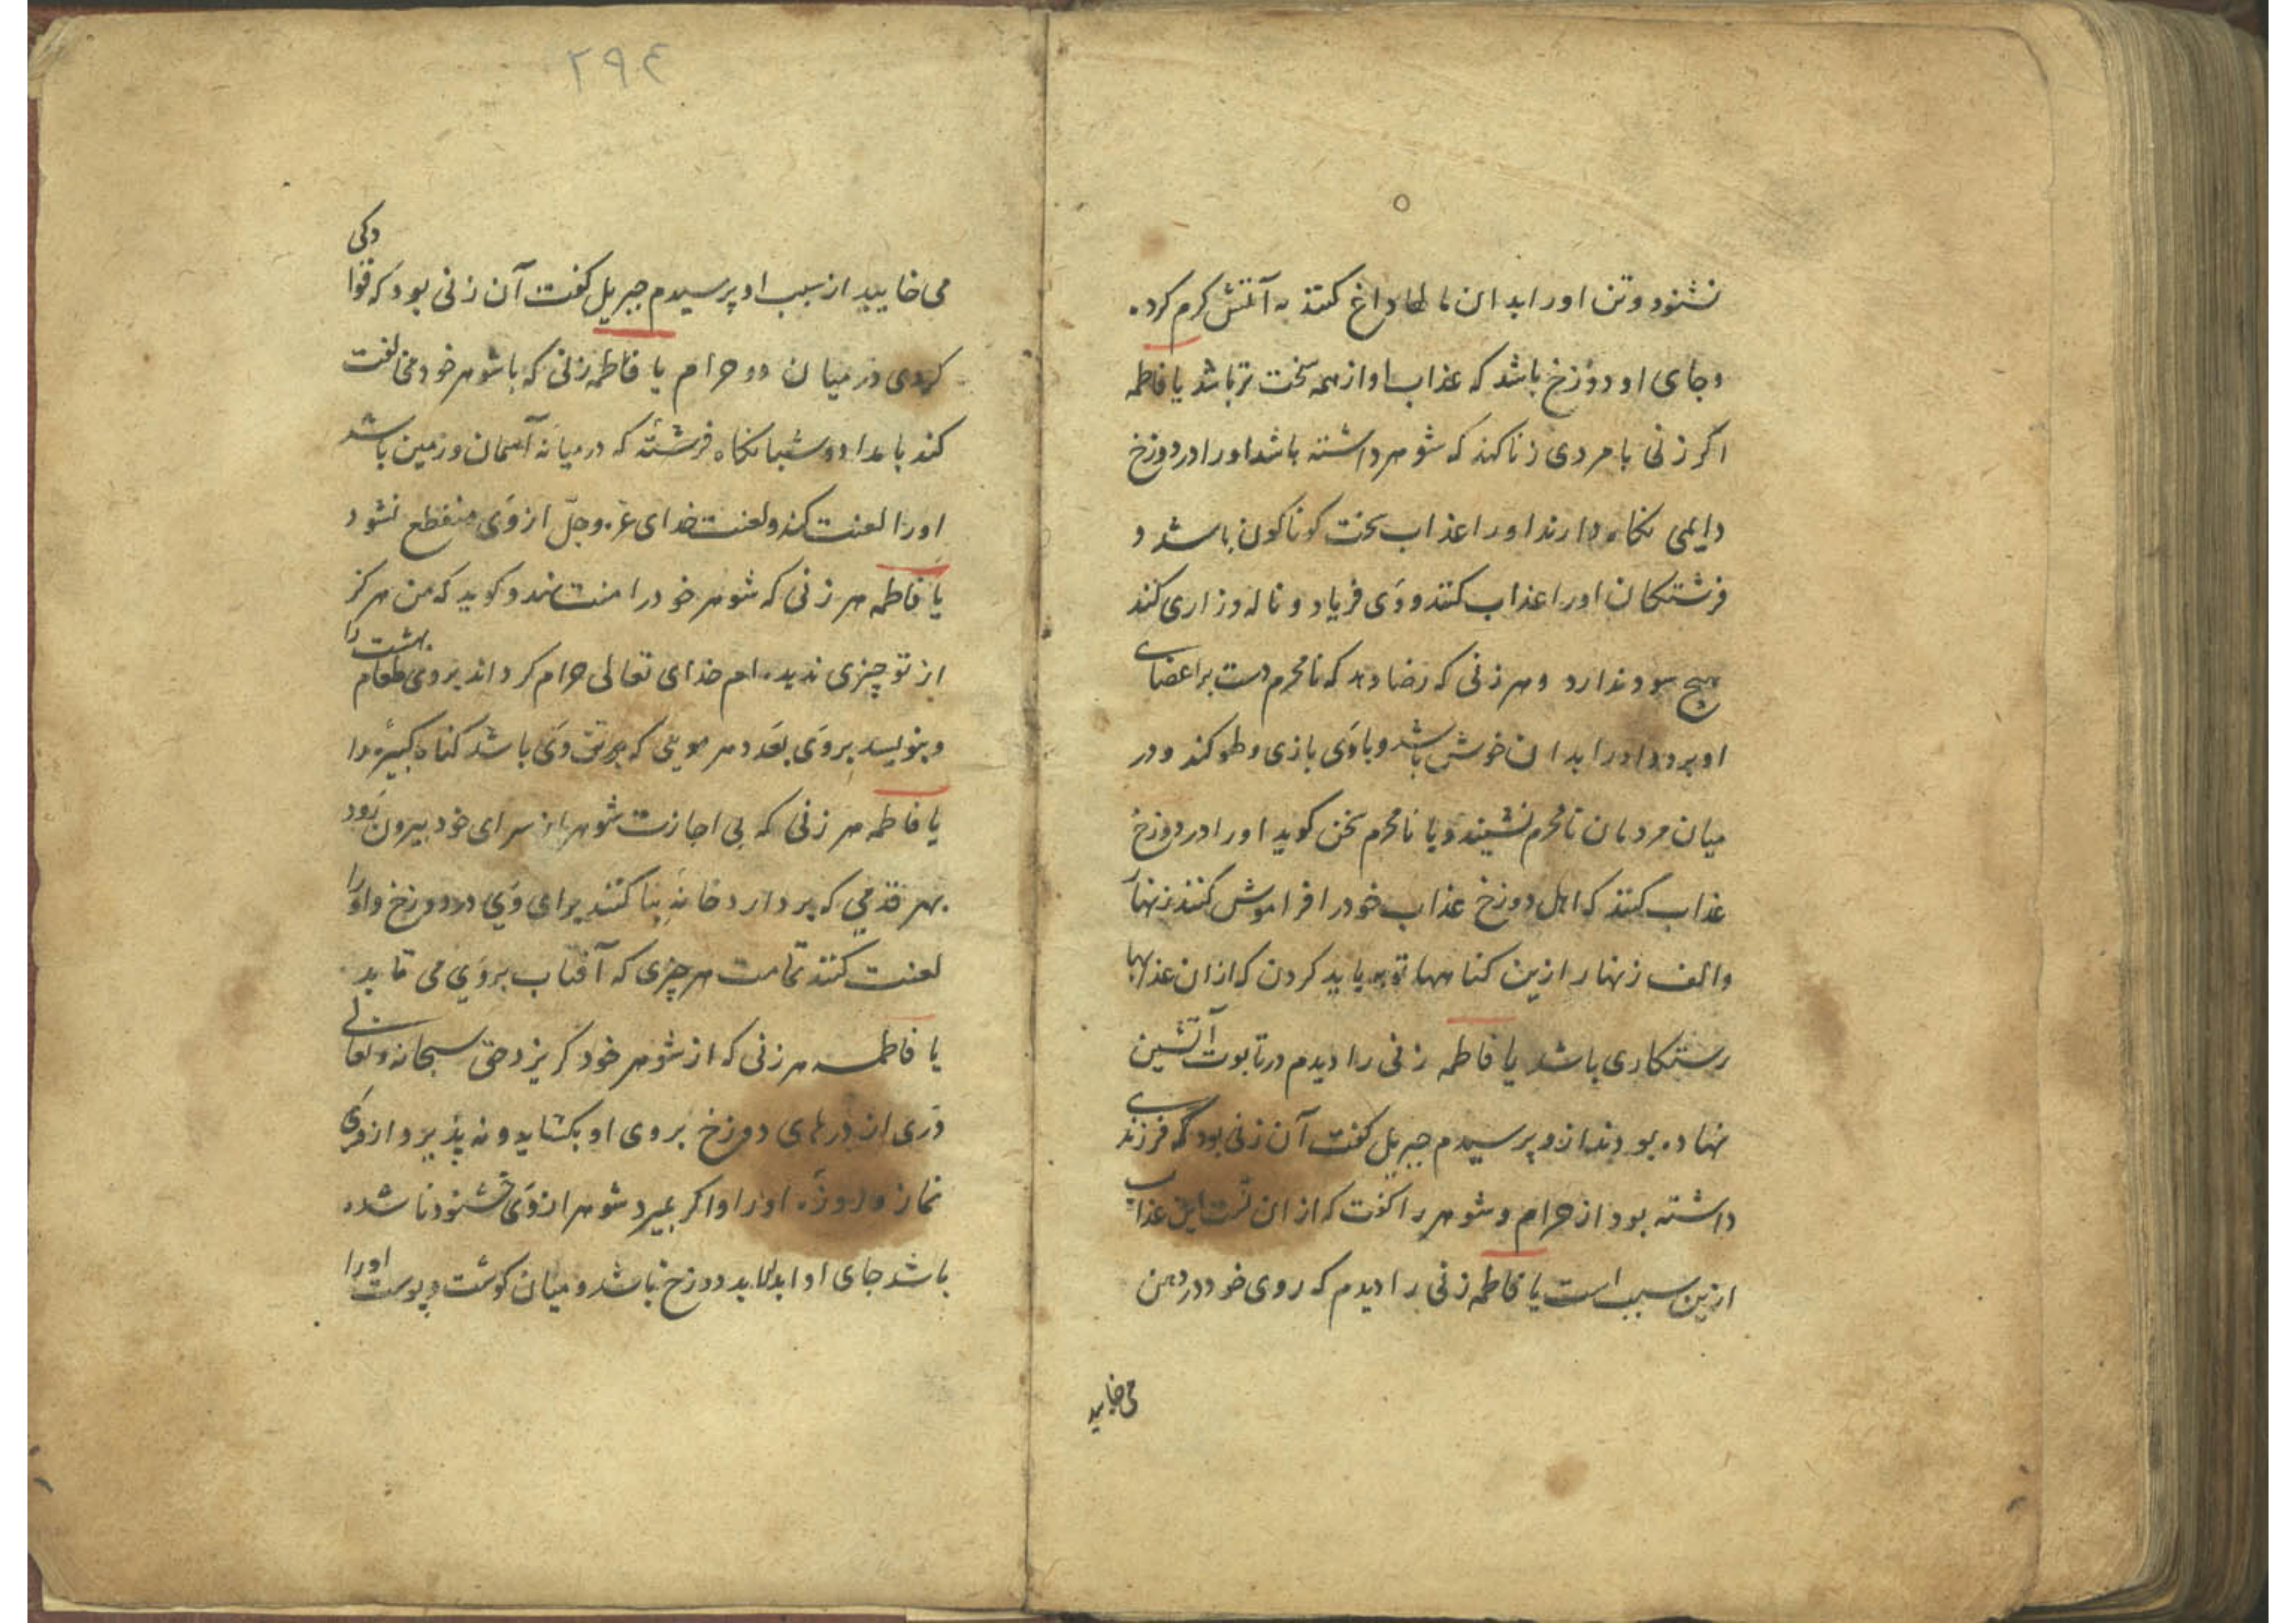 نشنود و تن او را بدان داغ کنند به آتش کرم کرده
و جای او دوزخ باشد که عذاب او از همه سخت تر باشد یا فاطمه
اکر زنی با مردی زنا کند که شوهر داشته باشد او را در دوزخ
دایمی نکاه دارند او را عذاب سخت کوناکون باشد و
فرشتکان او را عذاب کنند و وی فریاد و ناله و زاری کند
هیچ سود ندارد و هر زنی که رضا دهد که نامحرم دست بر اعضای
او برد و او را بدان خوش باشد و با وی بازی و طو کند و در
میان مردمان نامحرم نشیند و با نامحرم سخن کوید او را در دوزخ
عذاب کنند که اهل دوزخ عذاب خود را فراموش کنند زنهار
والف زنهار ازین کناهها توبه باید کردن که از ان عذابها
رستکاری باشد یا فاطمه زنی را دیدم در تابوت آتشین
نهاده بودند ازو پرسیدم جبریل کفت آن زنی بود که فرزندی
داشته بود از حرام و شوهر را کفت که از ان تست این عذاب
ازین سبب است یا فاطمه زنی را دیدم که روی خود در دهن
می خایید
۲۹٤
می خایید از سبب او پرسیدم جبریل کفت آن زنی بود که قوادکی
کردی در میان دو حرام یا فاطمه زنی که با شوهر خود مخالفت
کند بامداد و شبانکاه فرشته که در میانه آسمان و زمین باشد
او را لعنت کند و لعنت خدای عز و جل از وی منقطع نشود
یا فاطمه هر زنی که شوهر خود را منت نهد و کوید که من هرکز
از تو چیزی ندیده ام خدای تعالی حرام کرداند بر وی طعام بهشت را
و بنویسد بر وی بعدد هر مویی که بر تن وی باشد کناه کبیره را
یا فاطمه هر زنی که بی اجازت شوهر از سرای خود بیرون رود
بهر قدمی که بردارد خانه بنا کنند برای وی در دوزخ و او را
لعنت کنند تمامت هر چیزی که آفتاب بر وی می تابد
یا فاطمه هر زنی که از شوهر خود کریزد حق سبحانه و تعالی
دری از درهای دوزخ بر وی او بکشاید و نه پذیرد از وی
نماز و روزه او را و اکر بمیرد شوهر از وی خشنود نا شده
باشد جای او ابدالابد دوزخ باشد و میان کوشت و پوست او را